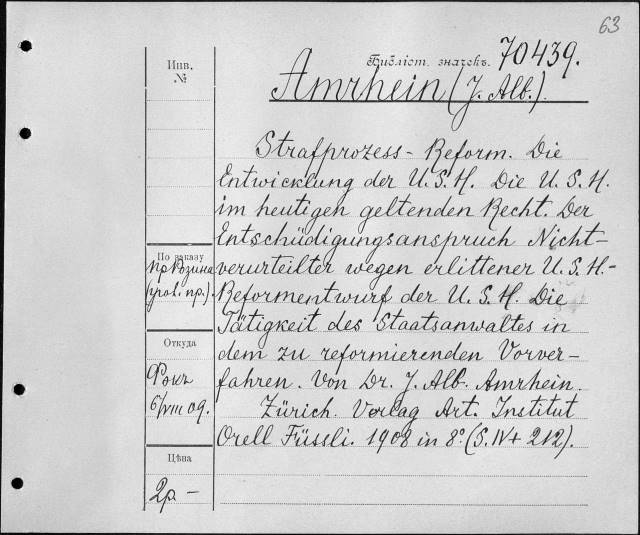 63
Инв. №
Библіот. значекъ. 70439.
Amrhein (J. Alb.).
Strafprozess - Reform. Die
Entwicklung der U. S. H. Die U. S. H.
im heutigen geltenden Recht. Der
Entschüdigungsanspruch Nicht-
verurteilter wegen erlittener U. S. H.-
Reformentwurf der U. S. H. Die
Tätigkeit des Staatsanwaltes in
dem zu reformierenden Vorver-
fahren. Von Dr. J. Alb. Amrhein.
Zürich. Verlag Art. Institut
Orell Füssli. 1908 in 8º. (S. IV + 212).
По заказу
пр. Розина
(угол. пр.).
Откуда
Фокъ
6/VIII 09.
Цѣна
2р. –